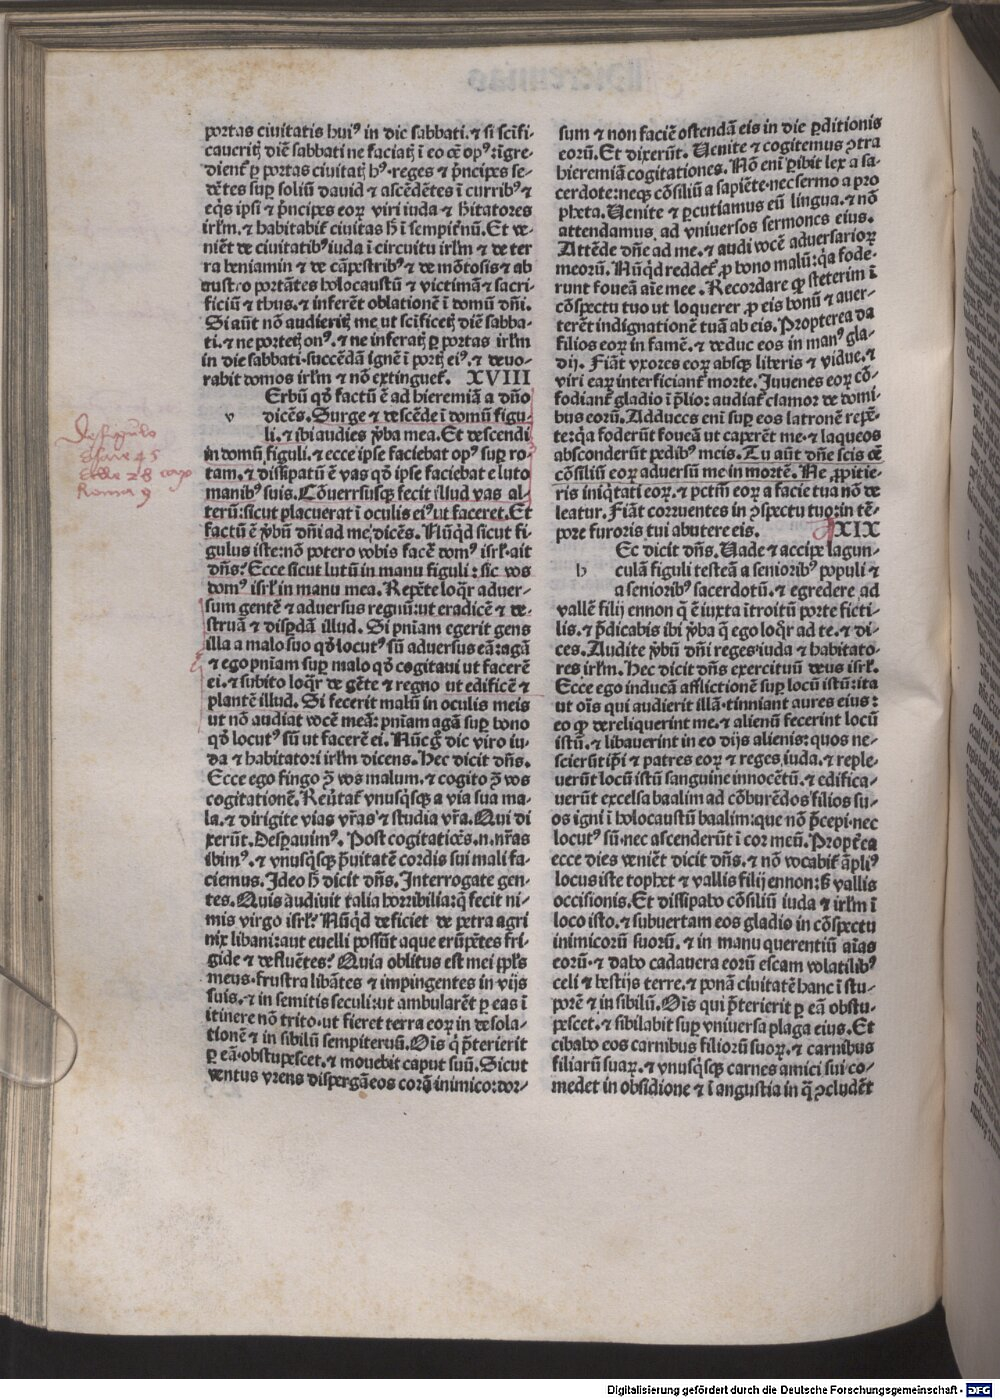 portas ciuitatis huiꝰ in die sabbati.⁊ si sc̄ifi-
caueritꝭ diē sabbati ne faciatꝭ ī eo oē opꝰ:īgre-
dient᷑ ꝑ portas ciuitatꝭ hꝰ.reges ⁊ p̄ncipes se-
dētes suꝑ soliū dauid ⁊ ascēdētes ī curribꝰ ⁊
eq̄s ipsi ⁊ p̄ncipes eoꝝ viri iuda ⁊ h̄itatores
irlm̄.⁊ habitabit᷑ ciuitas h̄ ī sempit᷑nū. Et ve-
niēt de ciuitatibꝰ iuda ī circuitu irlm̄ ⁊ de ter
ra beniamin ⁊ de cāpestribꝰ ⁊ de mōtosis ⁊ ab
austro portātes holocaustū ⁊ victimā ⁊ sacri-
ficiū ⁊ thus.⁊ inferēt oblationē ī domū dn̄i.
Si aūt nō audieritꝭ me ut sc̄ificetꝭ diē sabba-
ti.⁊ ne portetꝭ onꝰ.⁊ ne inferatꝭ ꝑ portas irlm̄
in die sabbati.succēdā ignē ī portꝭ eiꝰ.⁊ deuo-
rabit domos irlm̄ ⁊ nō extinguet᷑. XVIII
Erbū qd̄ factū ē ad hieremiā a dn̄o
v dicēs. Surge ⁊ descēde ī domū figu-
li.⁊ ibi audies v̄ba mea. Et descendi
in domū figuli.⁊ ecce ipse faciebat opꝰ suꝑ ro-
tam.⁊ dissipatū ē vas qd̄ ipse faciebat e luto
manibꝰ suis. Cōuersusqꝫ fecit illud vas al-
terū:sicut placuerat ī oculis eiꝰ ut faceret. Et
factū ē v̄bū dn̄i ad me dicēs. Nūqd̄ sicut fi-
gulus iste:nō potero vobis facē domꝰ isrl̄.ait
dn̄s? Ecce sicut lutū in manu figuli:sic vos
domꝰ isrl̄ in manu mea. Repēte loq̄r aduer-
sum gentē ⁊ aduersus regnū:ut eradicē ⁊ de-
struā ⁊ disꝑdā illud. Si pn̄iam egerit gens
illa a malo suo qd̄ locutꝰ sū aduersus eā:agā
⁊ ego pn̄iam suꝑ malo qd̄ cogitaui ut facerē
ei.⁊ subito loq̄r de gēte ⁊ regno ut edificē ⁊
plantē illud. Si fecerit malū in oculis meis
ut nō audiat vocē meā:pn̄iam agā suꝑ bono
qd̄ locutꝰ sū ut facerē ei. Nūc g̊ dic viro iu-
da ⁊ habitatori irlm̄ dicens. Hec dicit dn̄s.
Ecce ego fingo ꝯ̄ vos malum.⁊ cogito ꝯ̄ vos
cogitationē. Reu᷑tat᷑ vnusq̄sqꝫ a via sua ma-
la.⁊ dirigite vias vr̄as ⁊ studia vr̄a. Qui di
xerūt. Desꝑauimꝰ. Post cogitatiōes.n.nr̄as
ibimꝰ.⁊ vnusq̄sqꝫ p̄uitatē cordis sui mali fa-
ciemus. Ideo h̄ dicit dn̄s. Interrogate gen-
tes. Quis audiuit talia horribilia:q̄ fecit ni-
mis virgo isrl̄? Nūqd̄ deficiet de petra agri
nix libani:aut euelli possūt aque erūpētes fri-
gide ⁊ defluētes? Quia oblitus est mei ppl̄s
meus.frustra libātes ⁊ impingentes in vijs
suis.⁊ in semitis seculi:ut ambularēt ꝑ eas ī
itinere nō trito.ut fieret terra eoꝝ in desola-
tionē ⁊ in sibilū sempiternū. Oīs q̄ p̄terierit
ꝑ eā.obstupescet.⁊ mouebit caput suū. Sicut
ventus vrens dispergā eos corā inimico:dor-
sum ⁊ non faciē ostendā eis in die ꝑditionis
eorū. Et dixerūt. Uenite ⁊ cogitemus ꝯtra
hieremiā cogitationes. Nō enī ꝑibit lex a sa-
cerdote:neqꝫ cōsiliū a sapiēte.nec sermo a pro
pheta. Uenite ⁊ ꝑcutiamus eū lingua.⁊ nō
attendamus ad vniuersos sermones eius.
Attēde dn̄e ad me.⁊ audi vocē aduersarioꝝ
meorū. Nūqd̄ reddet᷑ ꝓ bono malū:q̄a fode-
runt foueā aīe mee. Recordare ꝙ steterim ī
cōspectu tuo ut loquerer ꝓ eis bonū ⁊ auer-
terēt indignationē tuā ab eis. Propterea da
filios eoꝝ in famē.⁊ deduc eos in manꝰ gla-
dij. Fiāt vxores eoꝝ absqꝫ liberis ⁊ vidue.⁊
viri eaꝝ interficiant᷑ morte. Juuenes eoꝝ cō-
fodiant᷑ gladio ī p̄lio: audiat᷑ clamor de domi
bus eorū. Adduces enī suꝑ eos latronē repē-
te:q̄a foderūt foueā ut caperēt me.⁊ laqueos
absconderūt pedibꝰ meis. Tu aūt dn̄e scis oē
cōsiliū eoꝝ aduersū me in mortē. Ne ꝓpitie-
ris iniq̄tati eoꝝ.⁊ pctm̄ eoꝝ a facie tua nō de
leatur. Fiāt corruentes in ꝯspectu tuo:in tē-
pore furoris tui abutere eis. XIX
Ec dicit dn̄s. Uade ⁊ accipe lagun-
h culā figuli testeā a senioribꝰ populi ⁊
a senioribꝰ sacerdotū.⁊ egredere ad
vallē filij ennon q̄ ē iuxta ītroitū porte ficti-
lis.⁊ p̄dicabis ibi v̄ba q̄ ego loq̄r ad te.⁊ di-
ces. Audite v̄bū dn̄i reges iuda ⁊ habitato-
res irlm̄. Hec dicit dn̄s exercituū deus isrl̄.
Ecce ego inducā afflictionē suꝑ locū istū:ita
ut oīs qui audierit illā.tinniant aures eius:
eo ꝙ dereliquerint me.⁊ alienū fecerint locū
istū.⁊ libauerint in eo dijs alienis:quos ne-
scierūt ip̄i ⁊ patres eorꝝ ⁊ reges iuda.⁊ reple-
uerūt locū istū sanguine innocētū.⁊ edifica-
uerūt excelsa baalim ad cōburēdos filios su-
os igni ī holocaustū baalim:que nō p̄cepi.nec
locutꝰ sū.nec ascenderūt ī cor meū. Propt᷑ea
ecce dies veniēt dicit dn̄s.⁊ nō vocabit᷑ āpliꝰ
locus iste tophet ⁊ vallis filij ennon:s̄ vallis
occisionis. Et dissipabo cōsiliū iuda ⁊ irlm̄ ī
loco isto.⁊ subuertam eos gladio in cōspectu
inimicorū suorū.⁊ in manu querentiū aīas
eorū.⁊ dabo cadauera eorū escam volatilibꝰ
celi ⁊ bestijs terre.⁊ ponā ciuitatē hanc ī stu-
porē ⁊ in sibilū. Oīs qui p̄terierit ꝑ eā obstu-
pescet.⁊ sibilabit suꝑ vniuersa plaga eius. Et
cibabo eos carnibus filiorū suoꝝ.⁊ carnibus
filiarū suaꝝ.⁊ vnusq̄sqꝫ carnes amici sui co-
medet in obsidione ⁊ ī angustia in q̄ ꝯcludēt
De figulo
Esaie 45
Roma 9
Digitalisierung gefördert durch die Deutsche Forschungsgemeinschaft - DFG